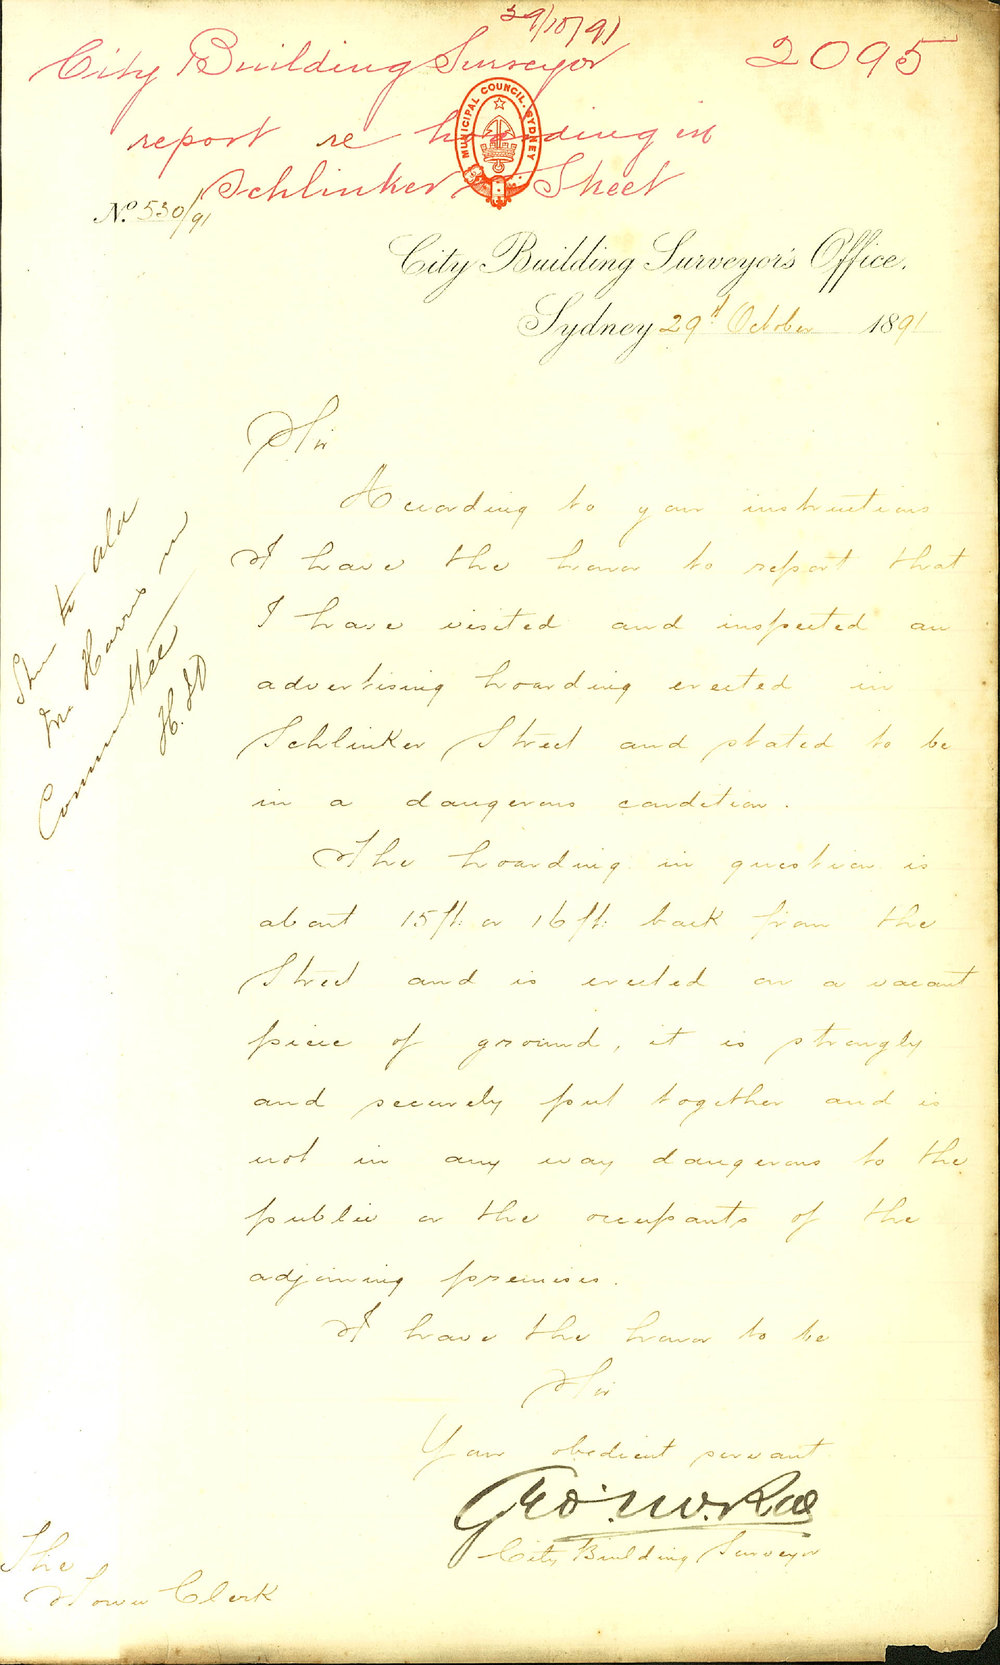 29/10/91
City Building Surveyor 2095
report re hoarding in
Schlinker Street
MUNICIPAL COUNCIL. SYDNEY
No. 530/91
City Building Surveyor's Office.
Sydney 29th October 1891
Sir
According to your instructions
I have the honor to report that
I have visited and inspected an
advertising hoarding erected in
Schlinker Street and stated to be
in a dangerous condition.
The hoarding in question is
about 15 ft. or 16 ft. back from the
Street and is erected on a vacant
piece of ground, it is strongly
and securely put together and is
not in any way dangerous to the
public or the occupants of the
adjoining premises.
I have the honor to be
Sir
Your obedient servant
Geo. McRae
City Building Surveyor
The
Town Clerk
to Ald
Harris in
Committee